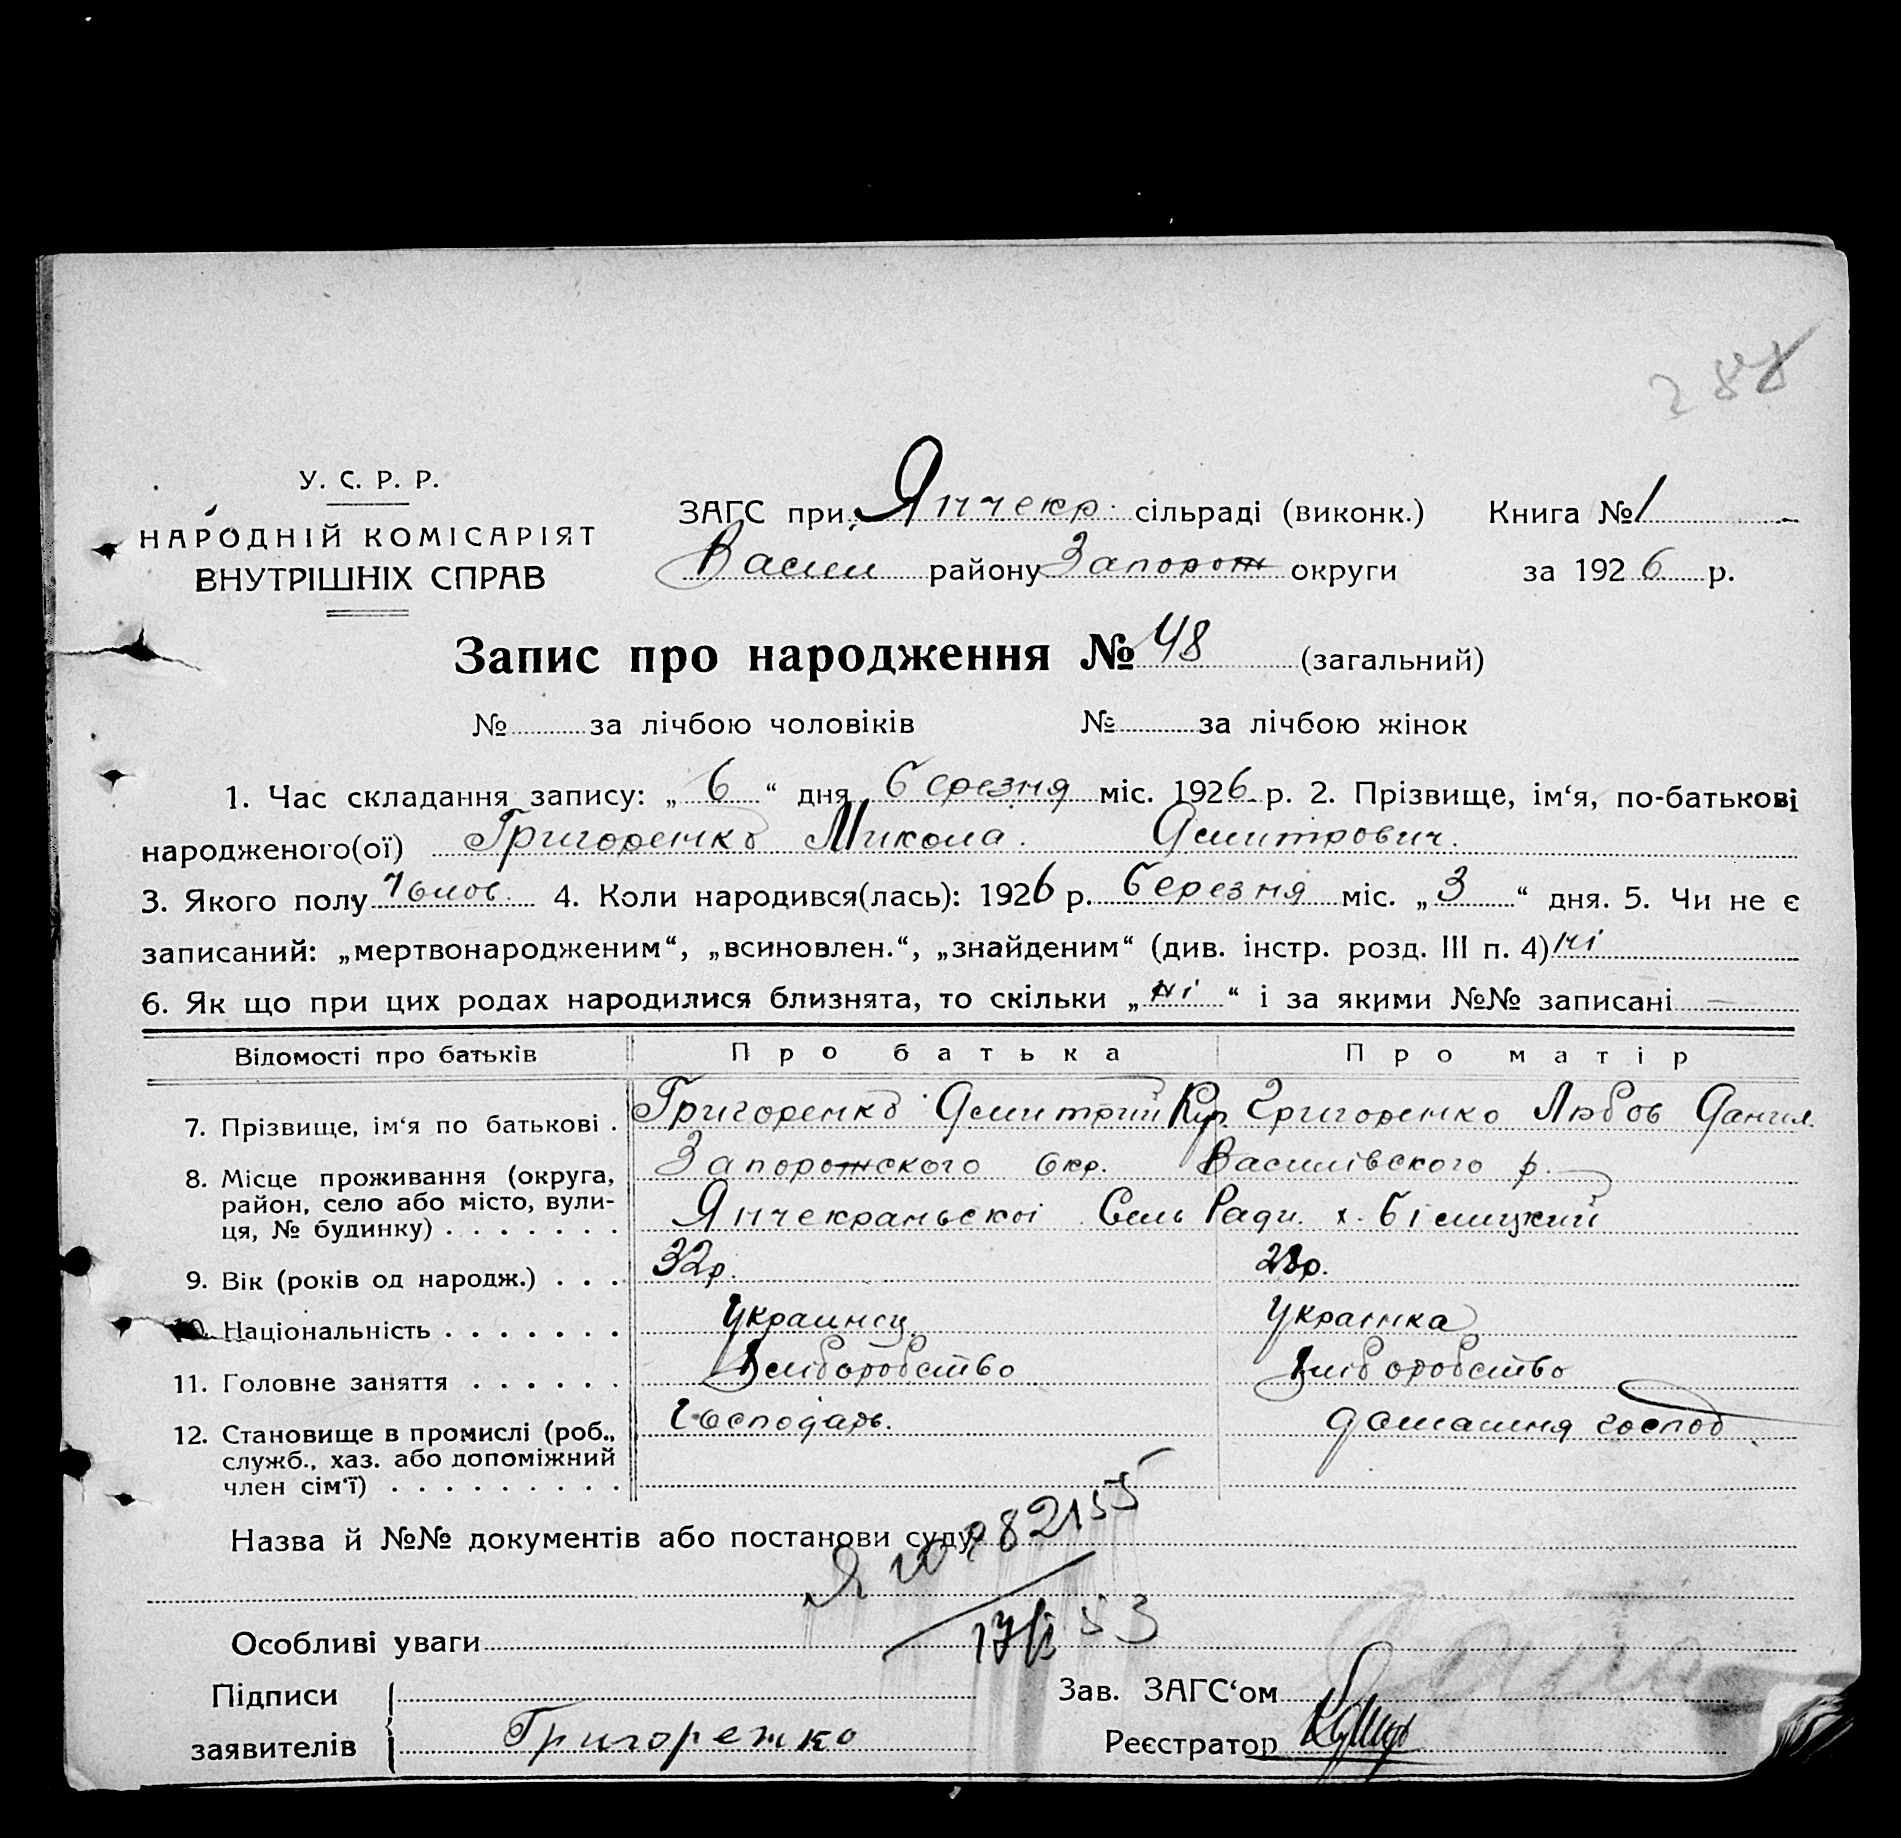 288
У. С. Р. Р.
НАРОДНІЙ КОМІСАРІЯТ
ВНУТРІШНІХ СПРАВ
ЗАГС при Янчекр. сільраді (виконк.) Книга № 1
Васил району Запорож округи за 1926 р.
Запис про народження № 48 (загальний)
№ за лічбою чоловіків № за лічбою жінок
1. Час складання запису: „ 6 “ дня березня міс. 1926 р. 2. Прізвище, ім‘я, по-батькові
народженого(ої) Григоренко Микола Дмитрович.
3. Якого полу чолов. 4. Коли народився(лась): 1926 р. березня міс. „ 3 “ дня. 5. Чи не є
записаний: „мертвонародженим“, „всиновлен.“, „знайденим“ (див. інстр. розд. III п. 4) ні
6. Як що при цих родах народилися близнята, то скільки „ ні “ і за якими №№ записані —
Відомості про батьків Про батька Про матір
7. Прізвище, ім‘я по батькові . Григоренко Дмитрий Григоренко Любов Данил.
8. Місце проживання (округа, Запорожского Окр. Василівского р.
район, село або місто, вули- Янчекраньскоі Сель Ради. х. Білицкий
ця, № будинку) . . . . . . .
9. Вік (років од народж.) . . . 32р. 28р.
10. Національність . . . . . . . Украинец Українка
11. Головне заняття . . . . . . Хліборобство Хліборобство
12. Становище в промислі (роб., Господарь. домашня господ
служб., хаз. або допоміжний
член сім‘ї) . . . . . . . . .
Назва й №№ документів або постанови суду
82155
53
Особливі уваги
Підписи Зав. ЗАГС‘ом
заявителів Григоренко Реєстратор